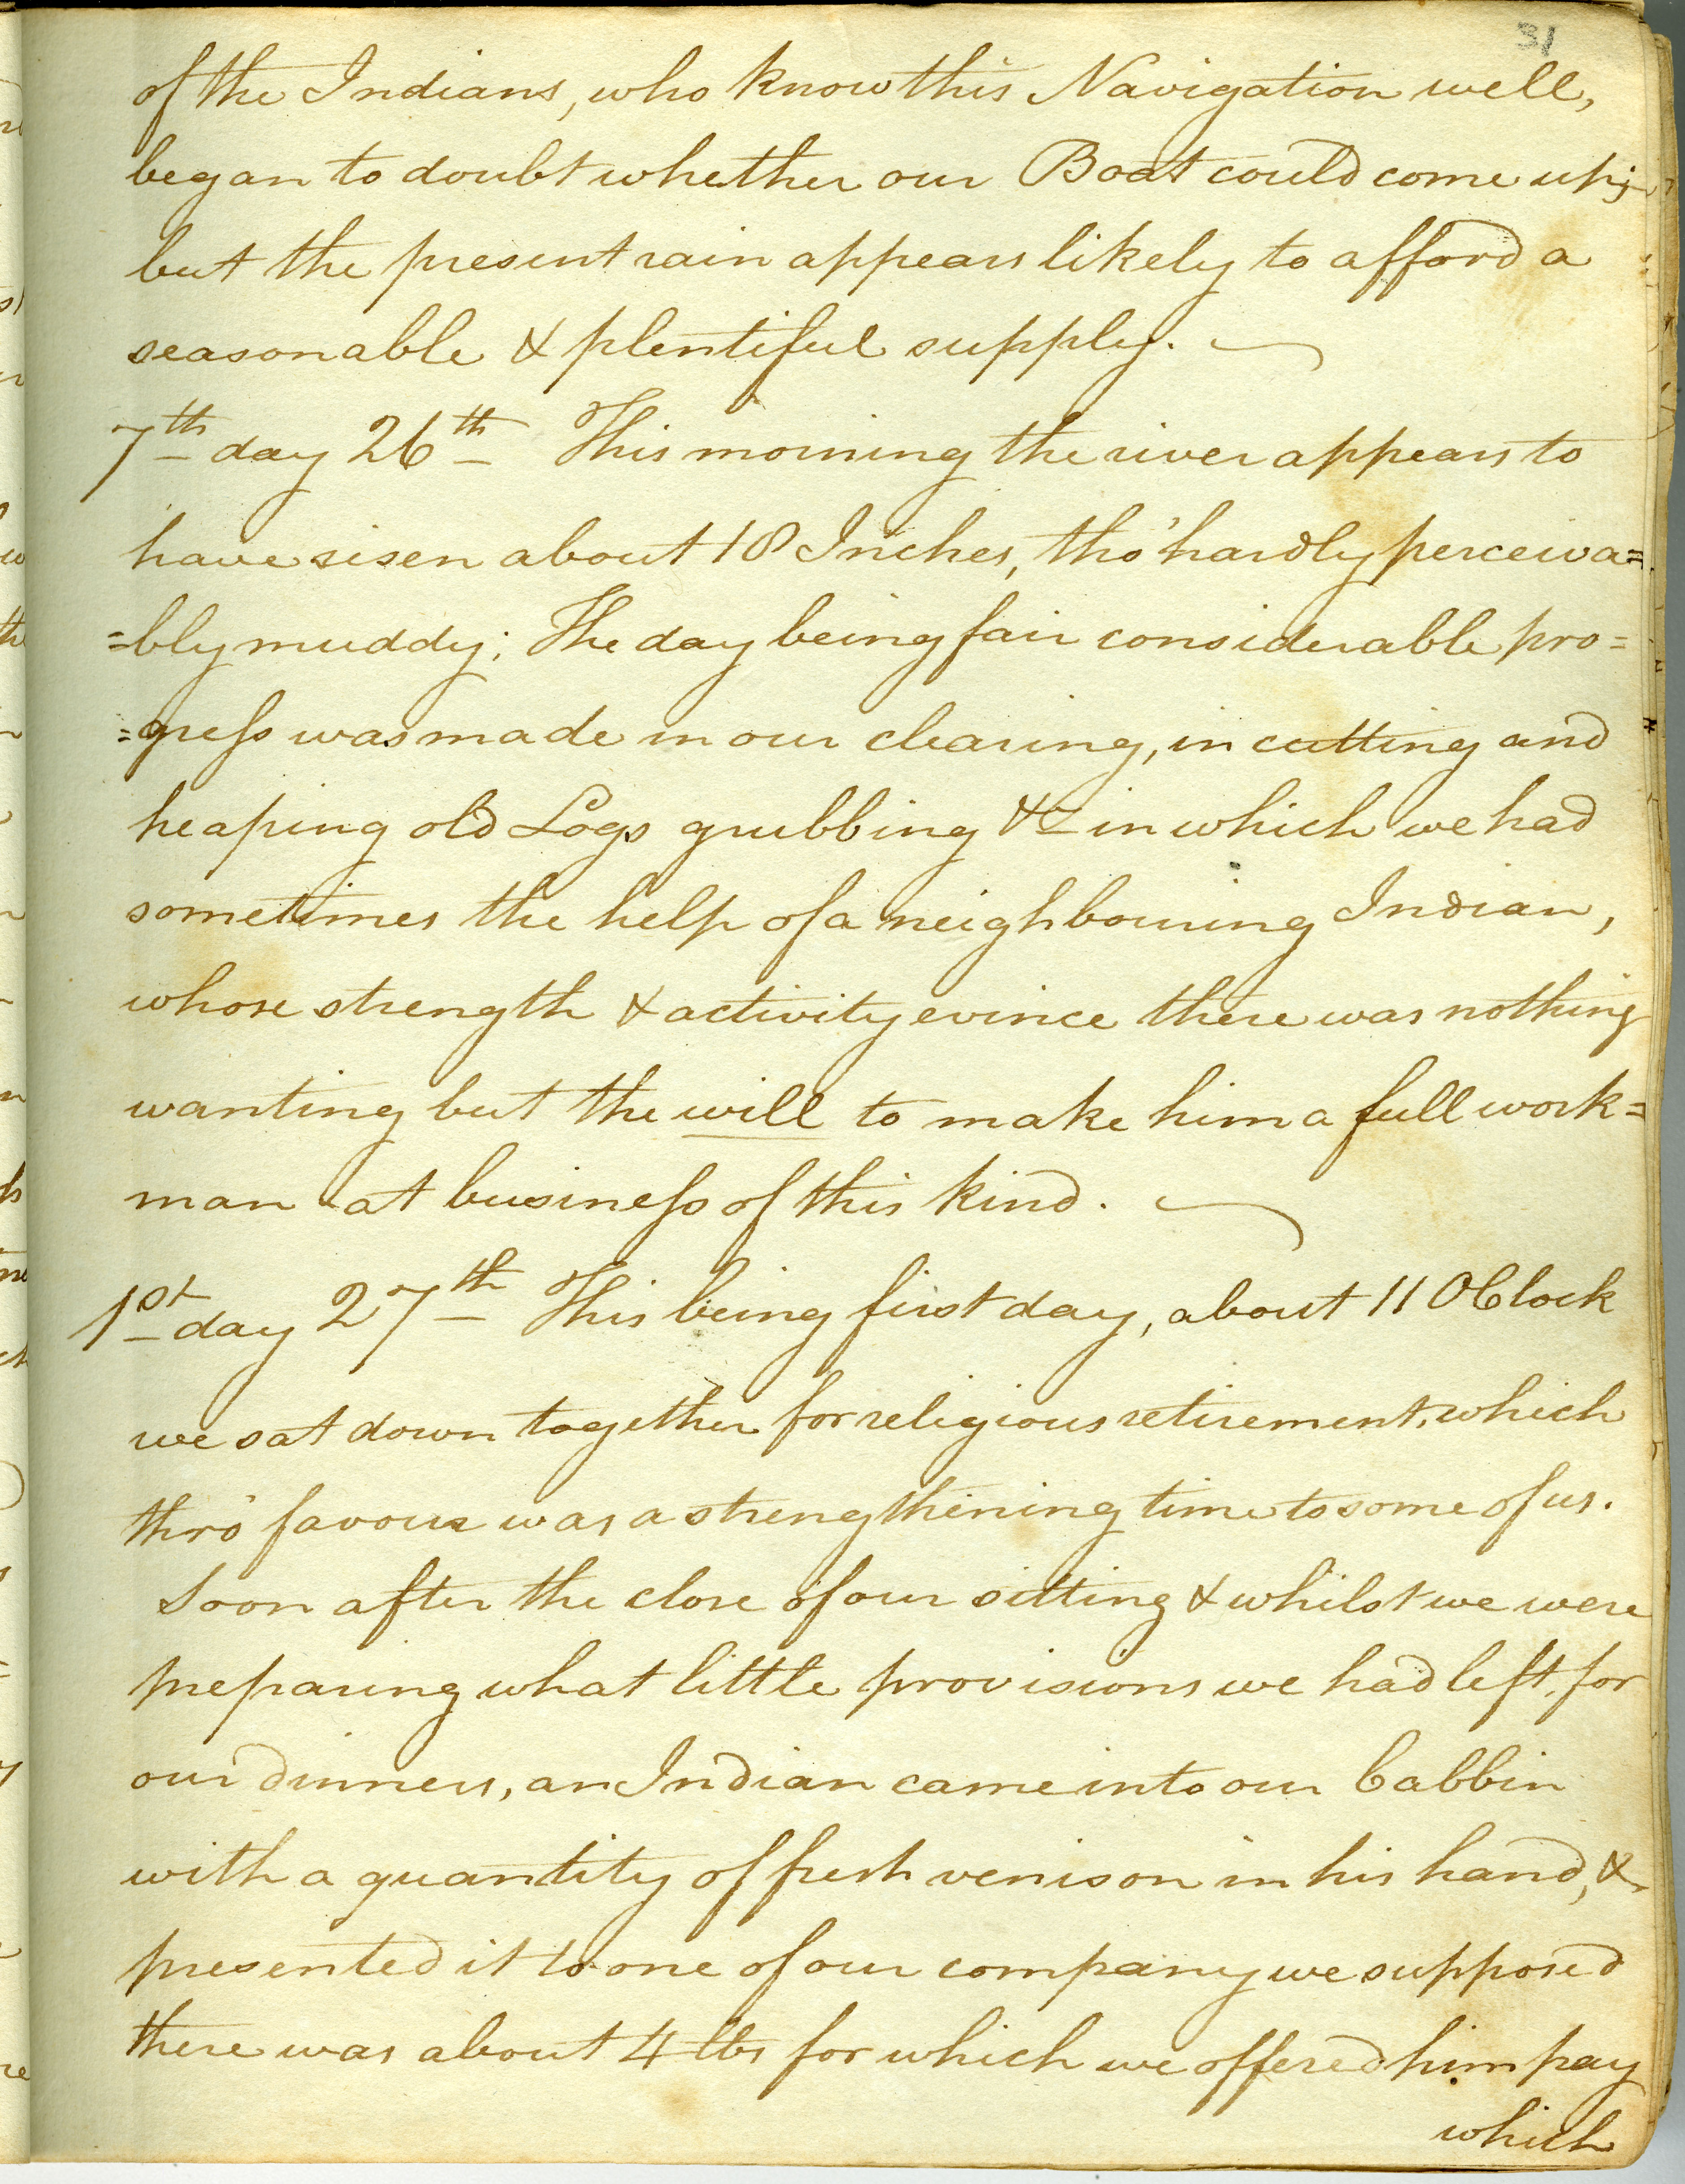 31
of the Indians, who know this Navigation well,
began to doubt whether our Boat could come up;
but the present rain appears likely to afford a
seasonable & plentiful supply.
7th day 26th This morning the river appears to
have risen about 18 Inches, tho' hardly perceiva=
=bly muddy; The day being fair considerable pro=
=gress was made in our clearing, in cutting and
heaping old Logs grubbing &c in which we had
sometimes the help of a neighbouring Indian,
whose strength & activity evince there was nothing
wanting but the will to make him a full work=
man at business of this kind.
1st day 27th This being first day, about 11 OClock
we sat down together for religious retirement, which
thro' favour was a strengthening time to some of us.
Soon after the close of our sitting & whilst we were
preparing what little provisions we had left, for
our dinners, an Indian came into our Cabbin
with a quantity of fresh venison in his hand, &
presented it to one of our company we supposed
there was about 4 lbs for which we offered him pay
which